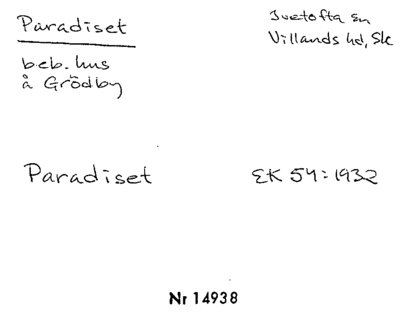 Paradiset
Ivetofta sn
Villands hd, Sk
beb. hus
å Grödby
Paradiset
EK 54:1932
Nr 14938